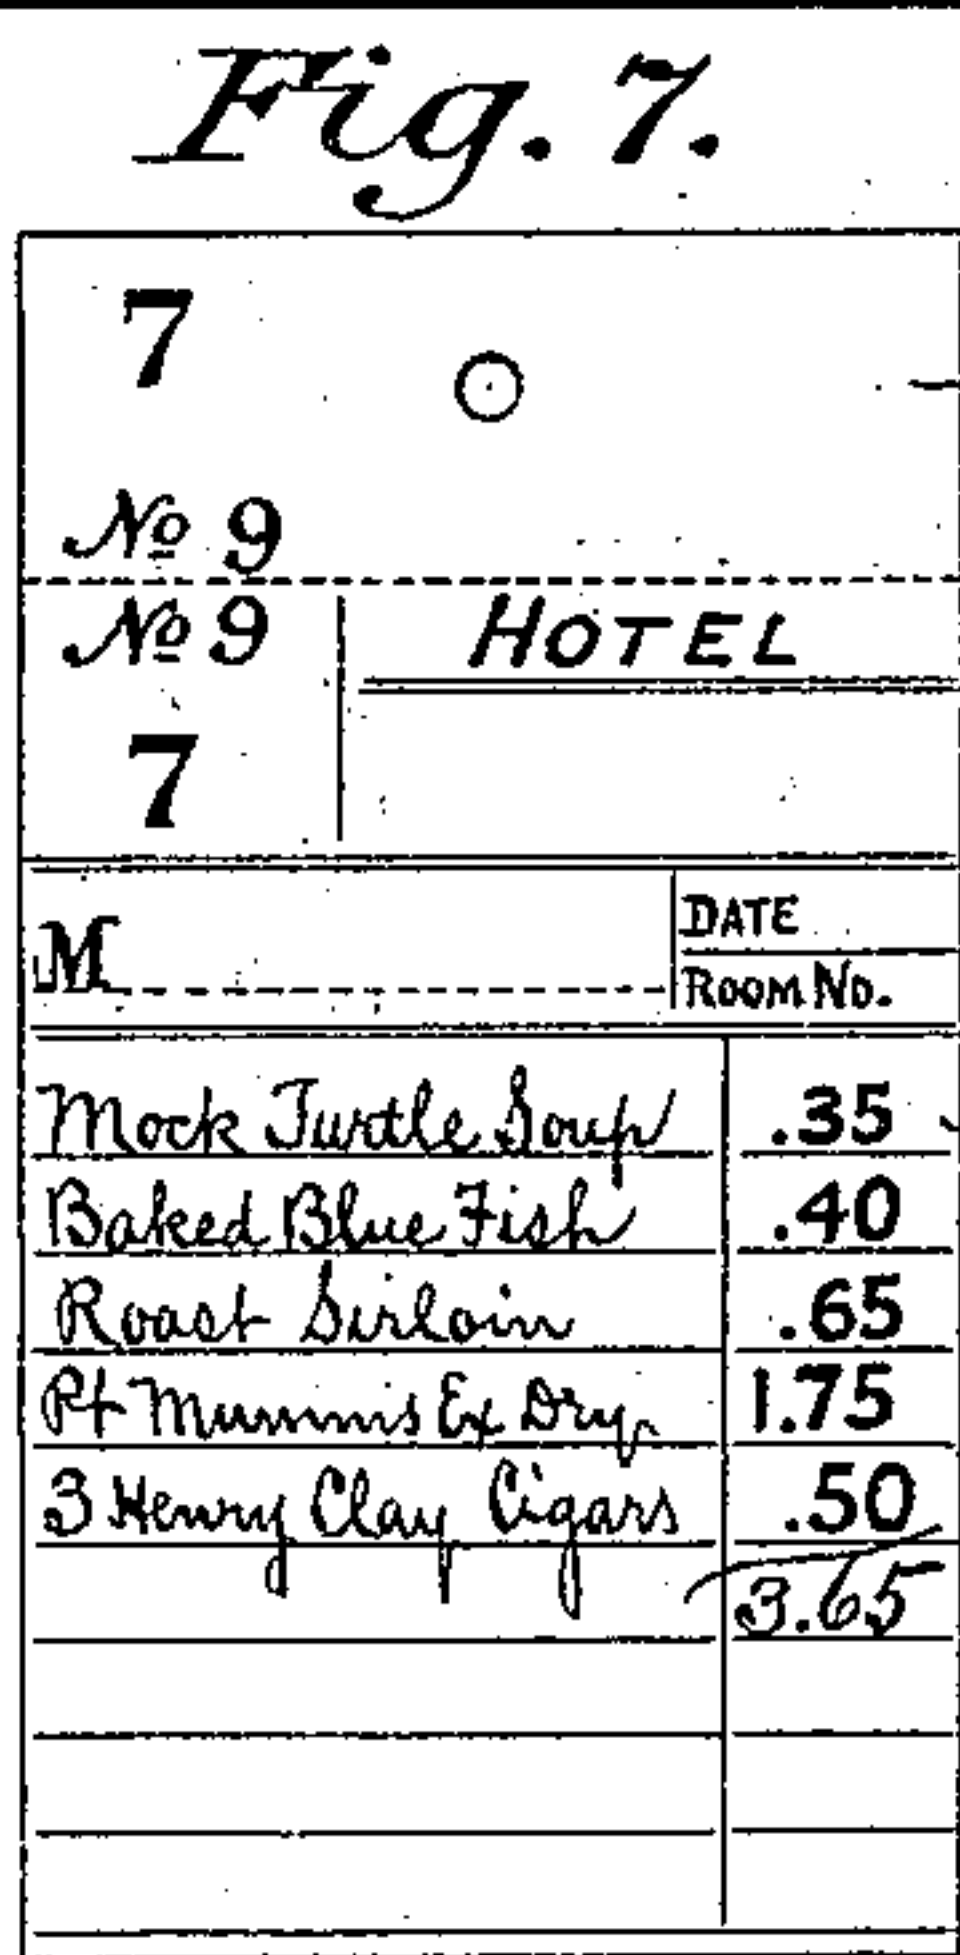 Fig. 7.
7
No 9
No 9
HOTEL
7
M
DATE
ROOM No.
Mock Turtle Soup .35
Baked Blue Fish .40
Roast Sirloin .65
Pt Mumms Ex Dry 1.75
3 Henry Clay Cigars .50
3.65